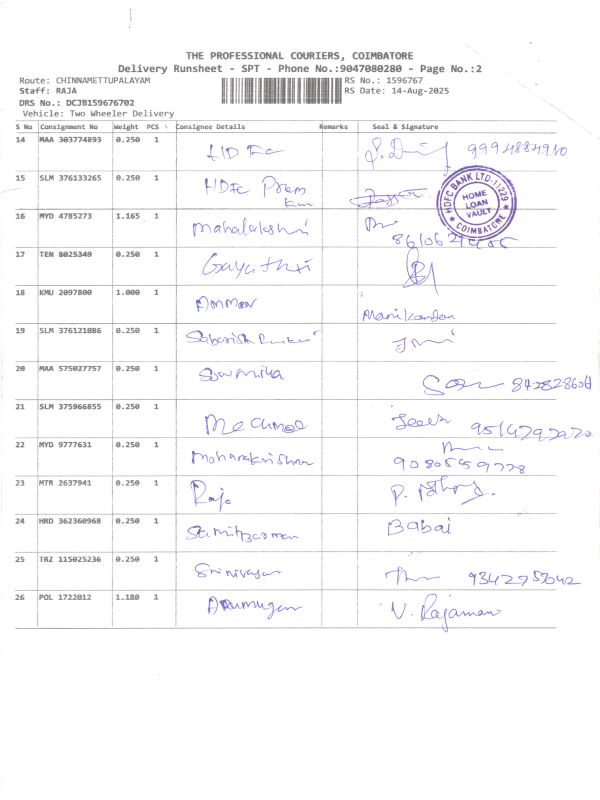 THE PROFESSIONAL COURIERS, COIMBATORE
Delivery Runsheet - SPT - Phone No.:9047080280 - Page No.:2
Route: CHINNAMETTUPALAYAM RS No.: 1596767
Staff: RAJA RS Date: 14-Aug-2025
DRS No.: DCJB159676702
Vehicle: Two Wheeler Delivery
S No Consignment No Weight PCS \ Consignee Details Remarks Seal & Signature
14 MAA 303774893 0.250 1
15 SLM 376133265 0.250 1 HDFC Prem
HDFC BANK LTD-11229
HOME
LOAN
VAULT
COIMBATORE
16 MYD 4785273 1.165 1
17 TEN 8025349 0.250 1 Gayathri
18 KMU 2097800 1.000 1 Amman Manikandan
19 SLM 376121086 0.250 1 Sabarish
20 MAA 575027757 0.250 1 Sowmika
21 SLM 375966855 0.250 1
22 MYD 9777631 0.250 1
9080559778
23 MTR 2637941 0.250 1 Raja
24 HRD 362360968 0.250 1 Babai
25 TRZ 115025236 0.250 1 Srinivasan
26 POL 1722012 1.180 1 Arumugam V. Rajaman